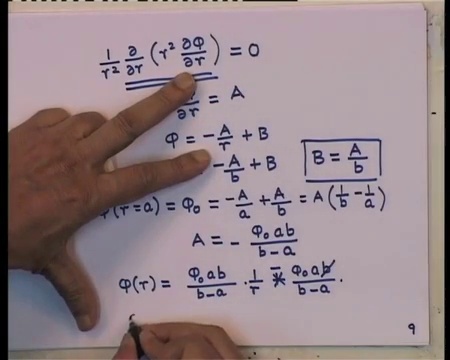 1/r² ∂/∂r (r² ∂φ/∂r) = 0
∂r = A
φ = -A/r + B
-A/b + B
B = A/b
(r=a) = φ₀ = -A/a + A/b = A(1/b - 1/a)
A = - φ₀ab/b-a
φ(r) = φ₀ab/b-a · 1/r - φ₀ab/b-a .
9